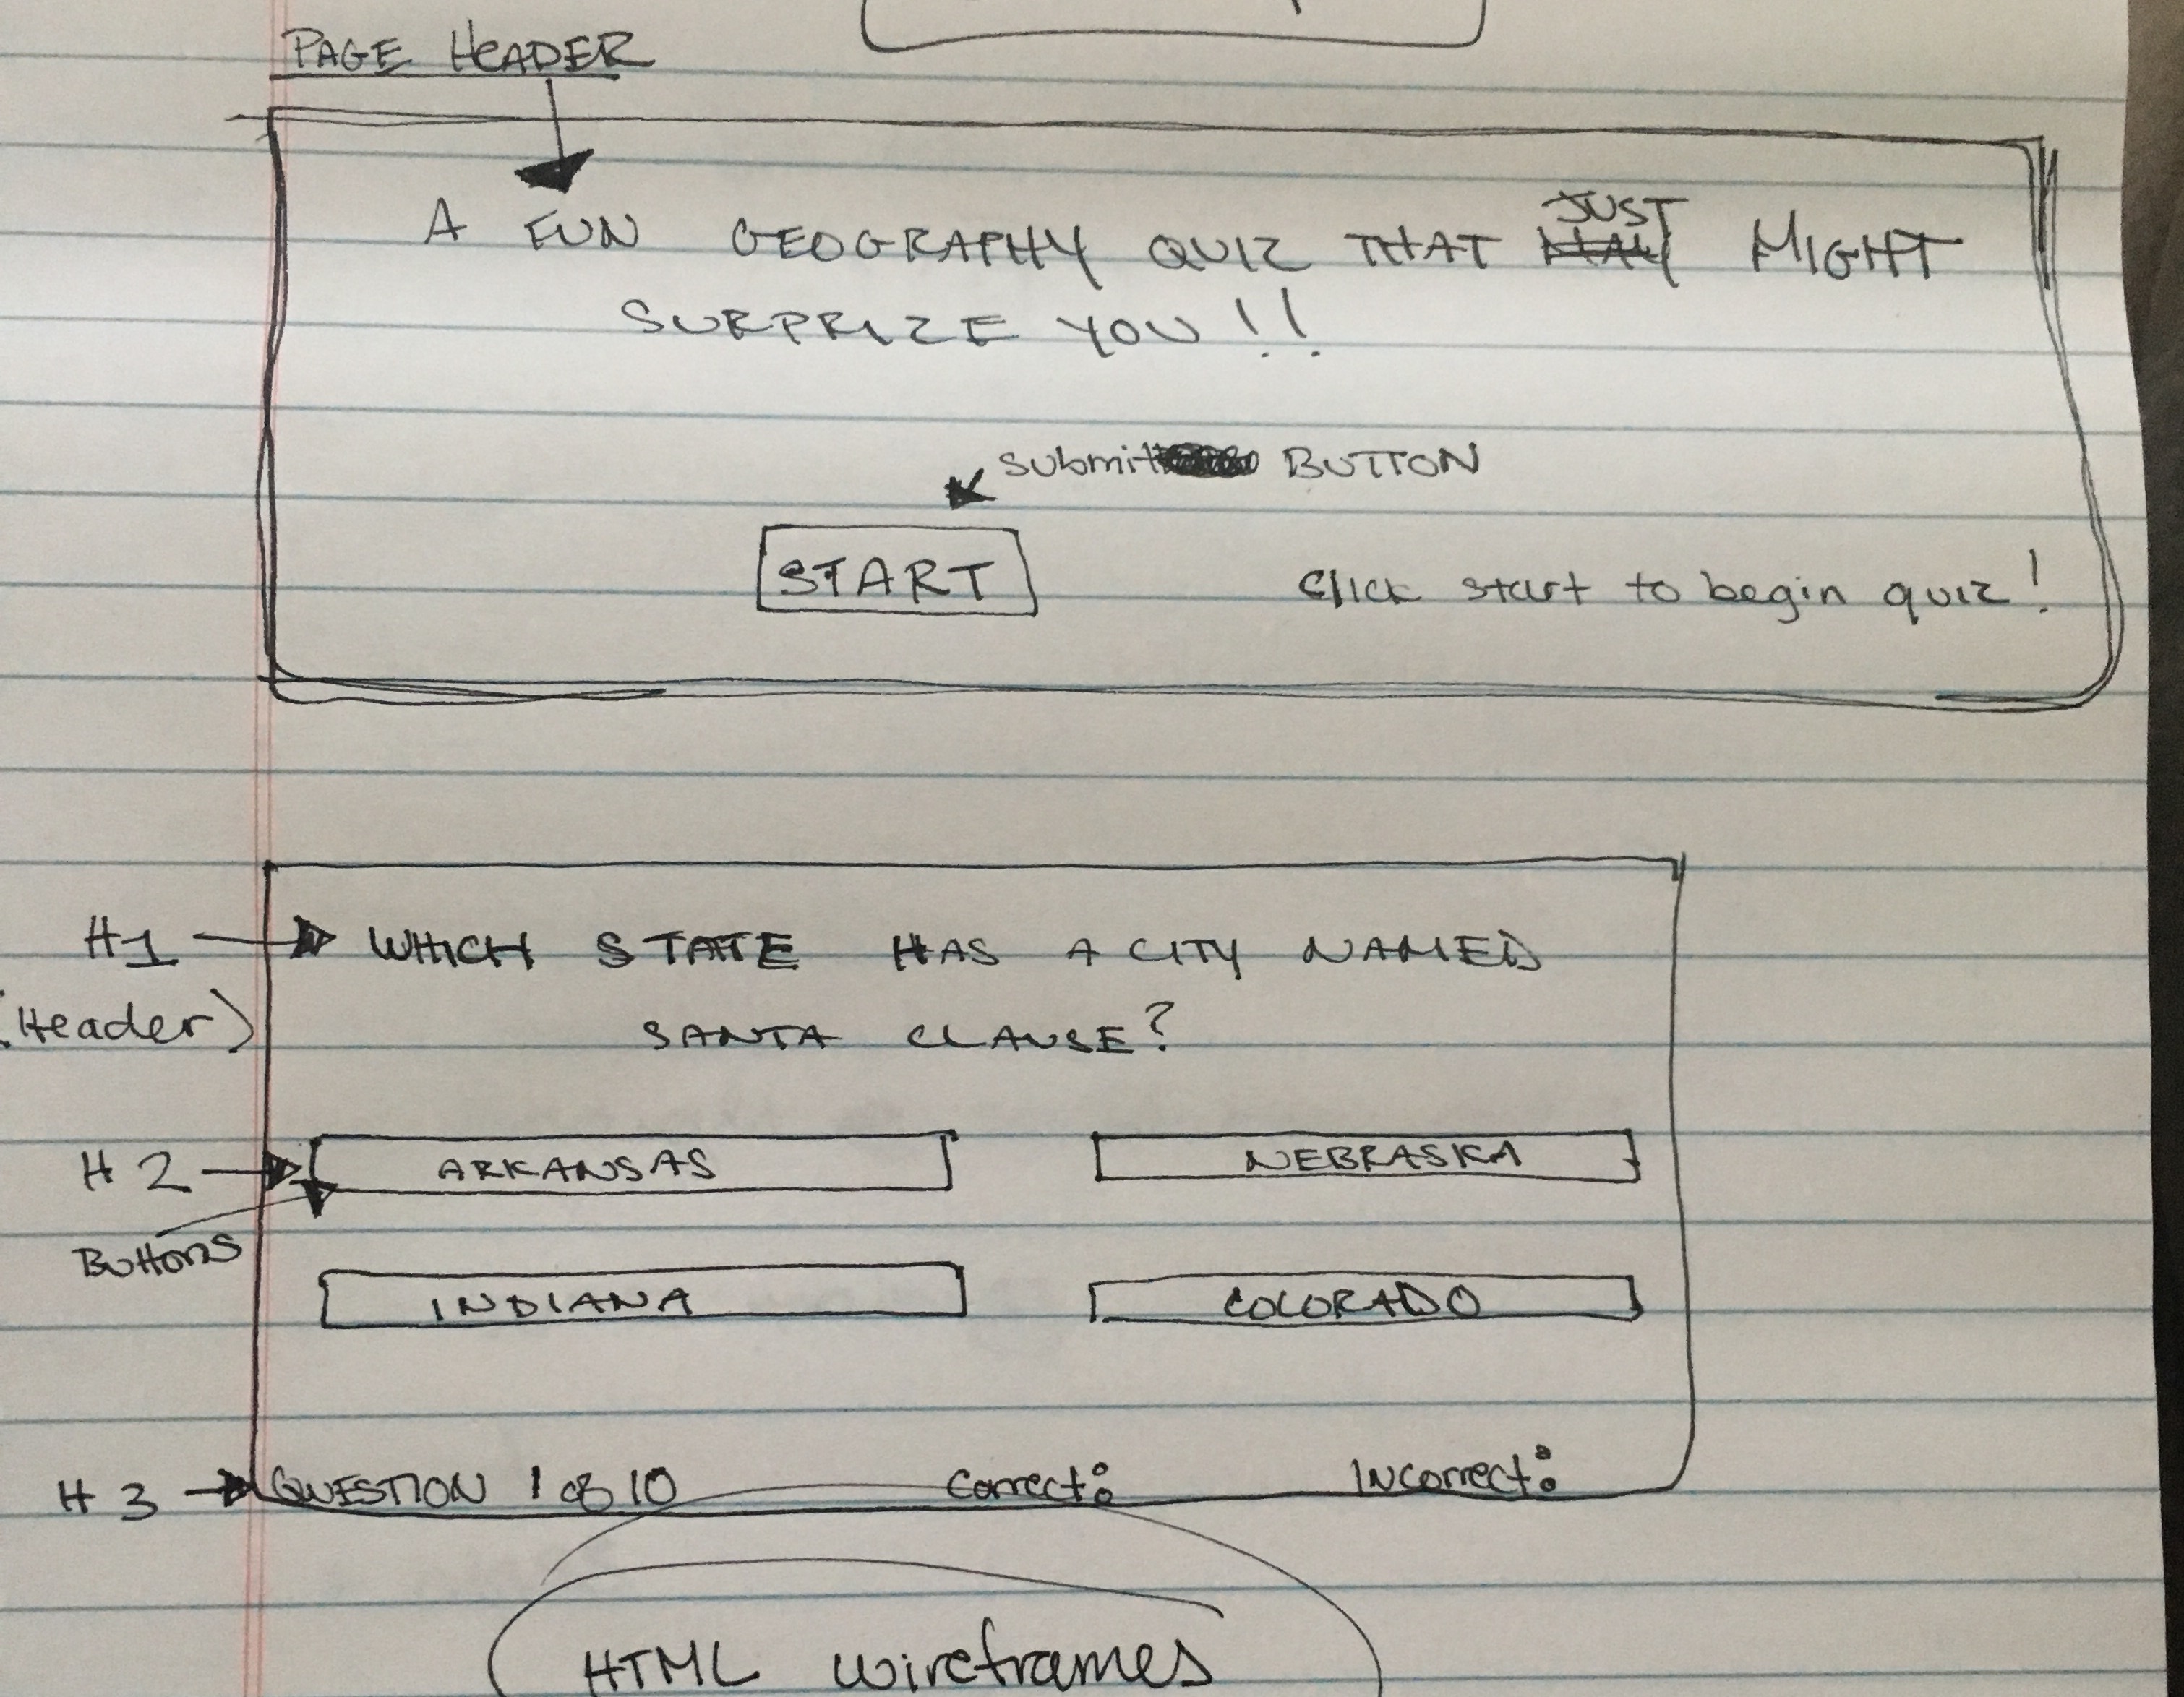 PAGE HEADER
JUST
A FUN GEOGRAPHY QUIZ THAT MIGHT
SURPRIZE YOU!!
submit BUTTON
START
Click start to begin quiz!
H1
WHICH STATE HAS A CITY NAMED
(Header)
SANTA CLAUSE?
H2
ARKANSAS NEBRASKA
Buttons
INDIANA COLORADO
H3
QUESTION 1 of 10 Correct: INCorrect:
HTML wireframes